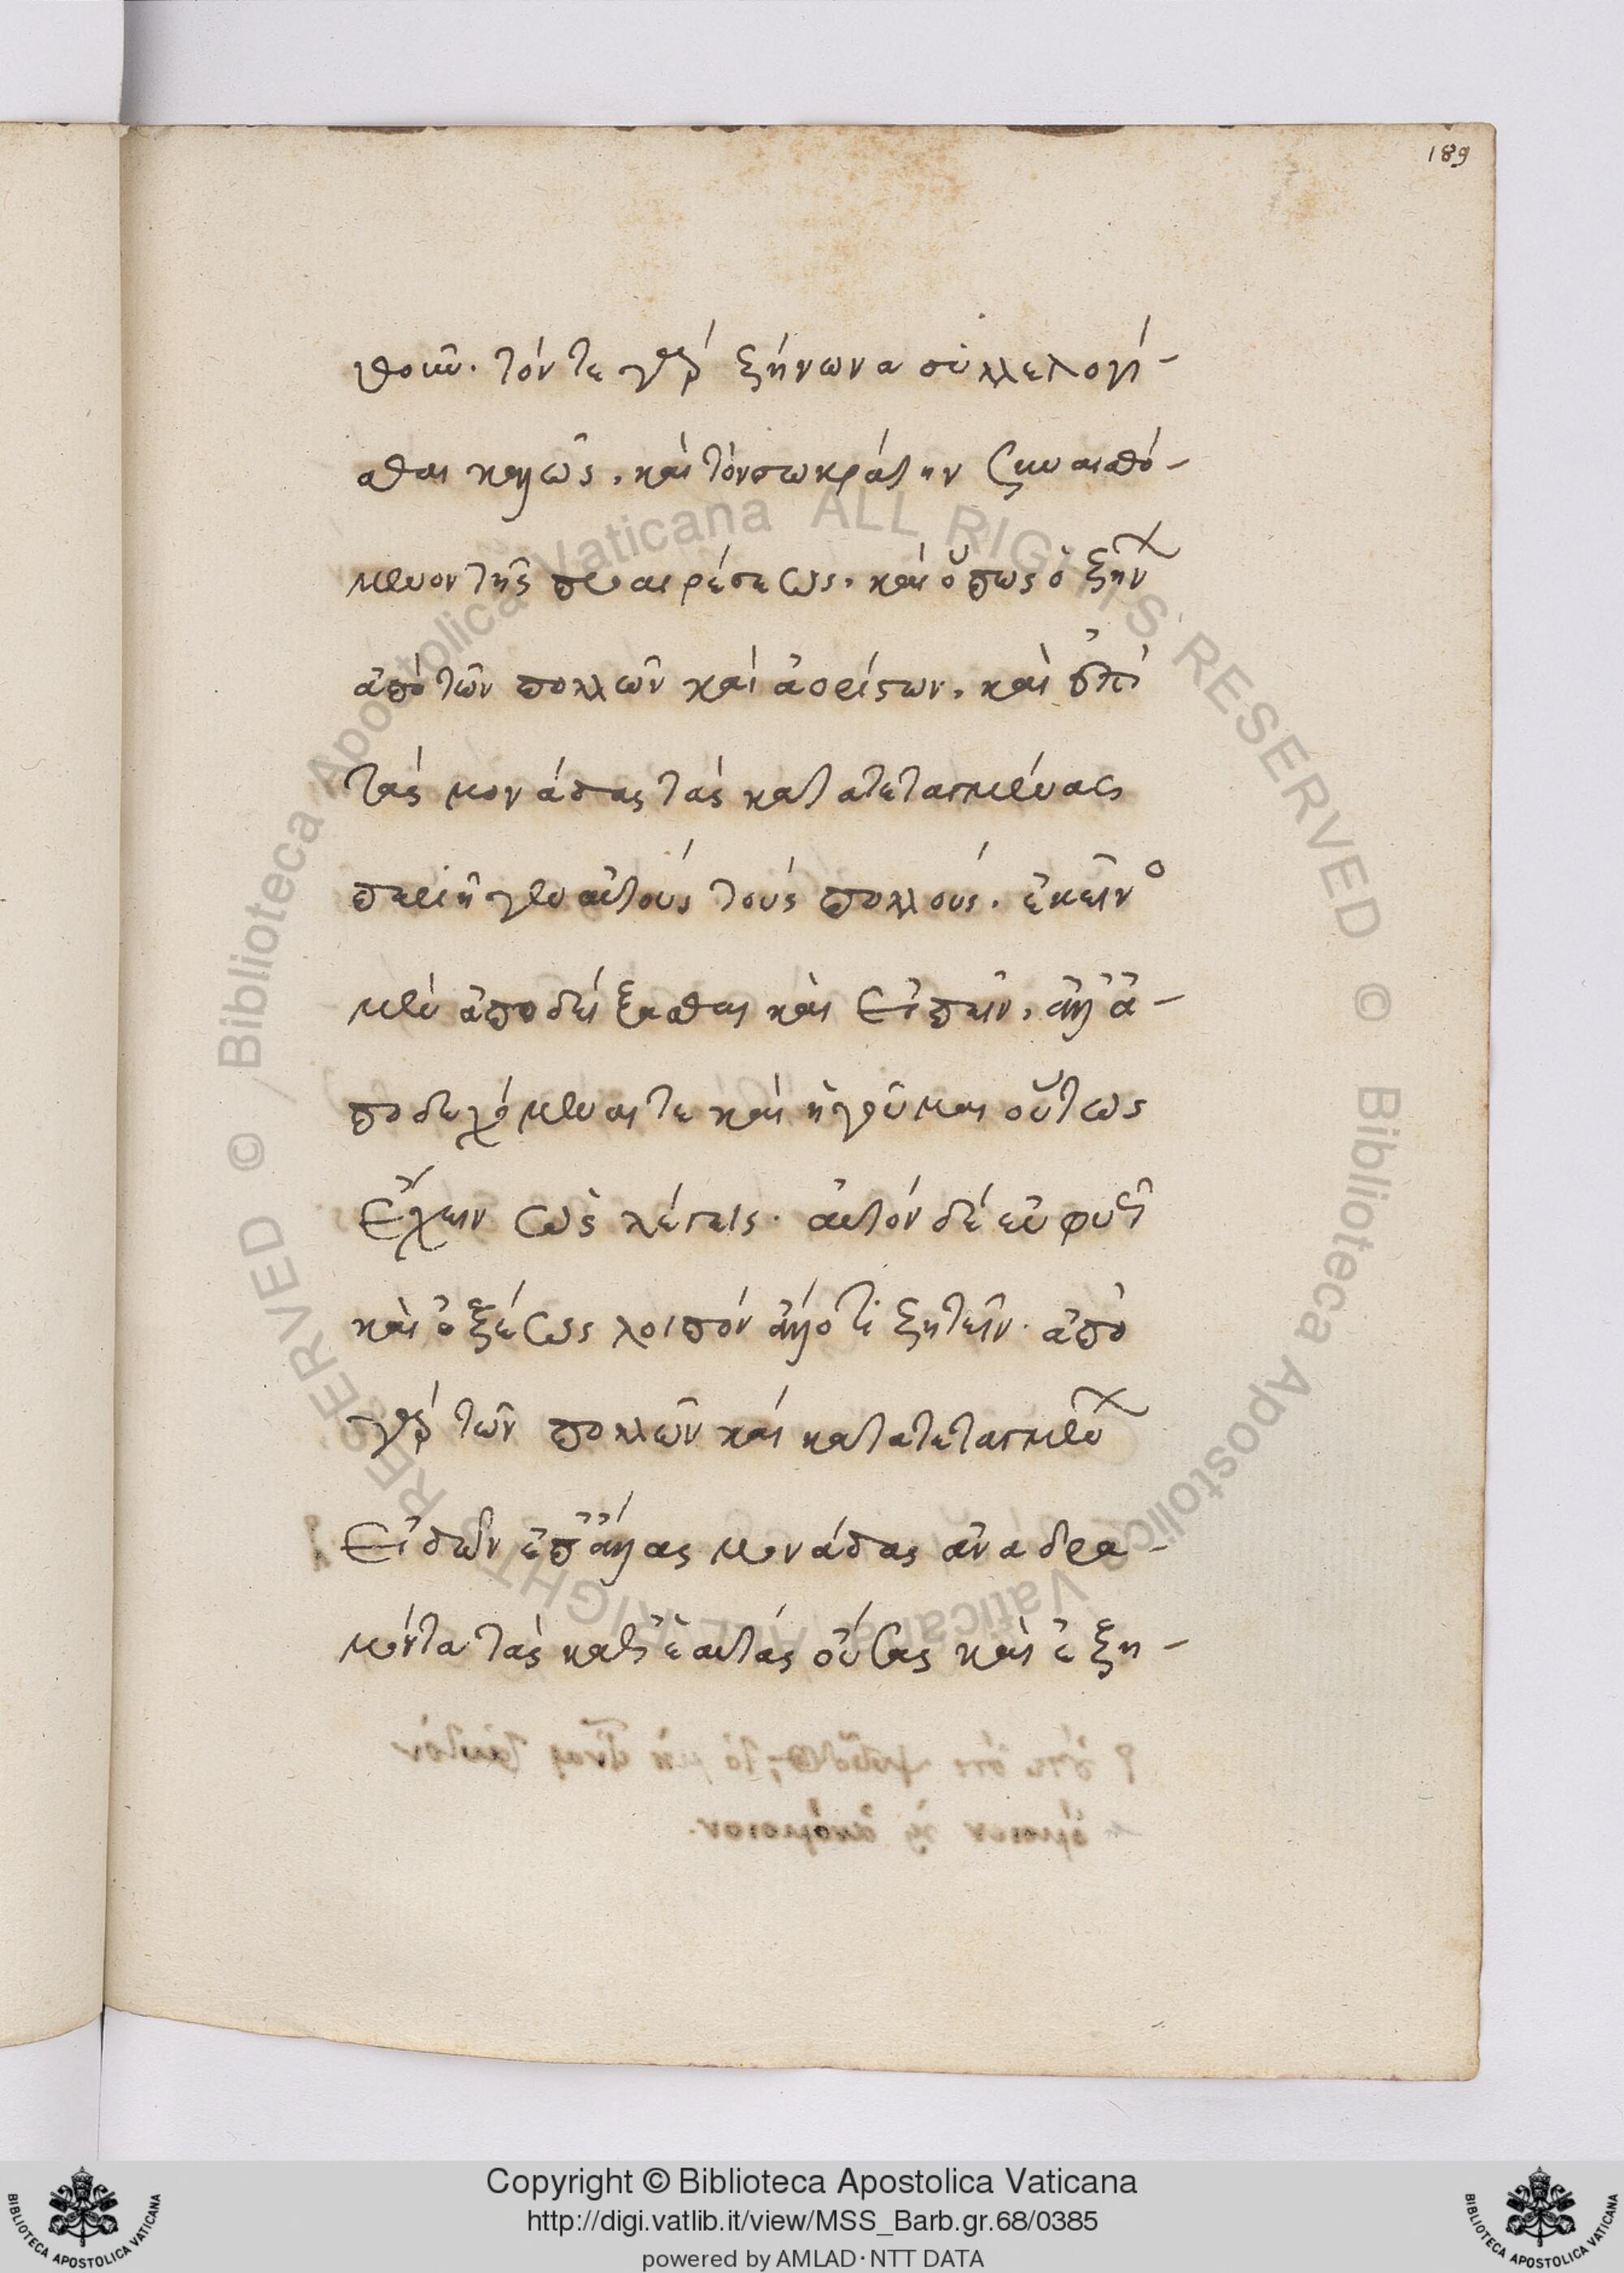 189
θοιμεν. τόν τε γὰρ ζήνωνα συλλελογί-
σθαι καλῶς, καὶ τὸν σωκράτην συναισθό-
μενον τῆς προαιρέσεως, καὶ ὅπως ὁ ζήνων
ἀπὸ τῶν πολλῶν καὶ ἀορίστων, καὶ ἐπὶ
τὰς μονάδας τὰς κατατεταγμένας
περιῆγεν αὐτοὺς τοὺς πολλούς. ἐκεῖνο
μὲν ἀποδείξασθαι καὶ εἰπεῖν, ἀλλ' ἀ-
ποδέχομαί τε καὶ ἡγοῦμαι οὕτως
ἔχειν ὡς λέγεις. αὐτὸν δὲ εὐφυῶς
καὶ ὀξέως λοιπὸν ἄλλο τι ζητεῖν. ἀπὸ
γὰρ τῶν πολλῶν καὶ κατατεταγμένων
εἰδῶν ἐπ' ἄλλας μονάδας ἀναδρα-
μόντα τὰς καθ' ἑαυτὰς οὔσας καὶ ἐξη-
Copyright © Biblioteca Apostolica Vaticana
http://digi.vatlib.it/view/MSS_Barb.gr.68/0385
powered by AMLAD·NTT DATA
BIBLIOTECA APOSTOLICA VATICANA
BIBLIOTECA APOSTOLICA VATICANA
© Biblioteca Apostolica Vaticana ALL RIGHTS RESERVED © Biblioteca Apostolica Vaticana ALL RIGHTS RESERVED